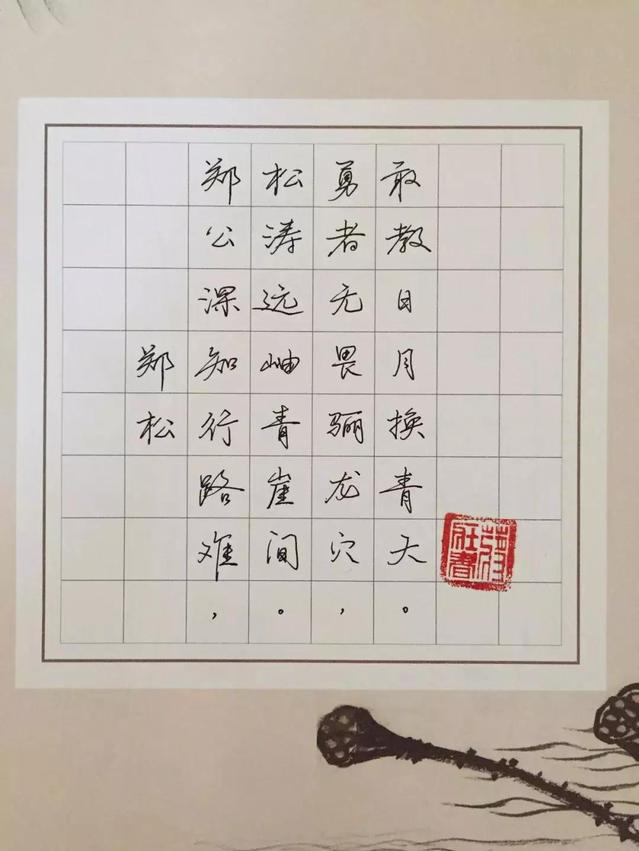 郑松
郑公深知行路难，
松涛远岫青崖间。
勇者无畏骊龙穴，
敢教日月换青天。